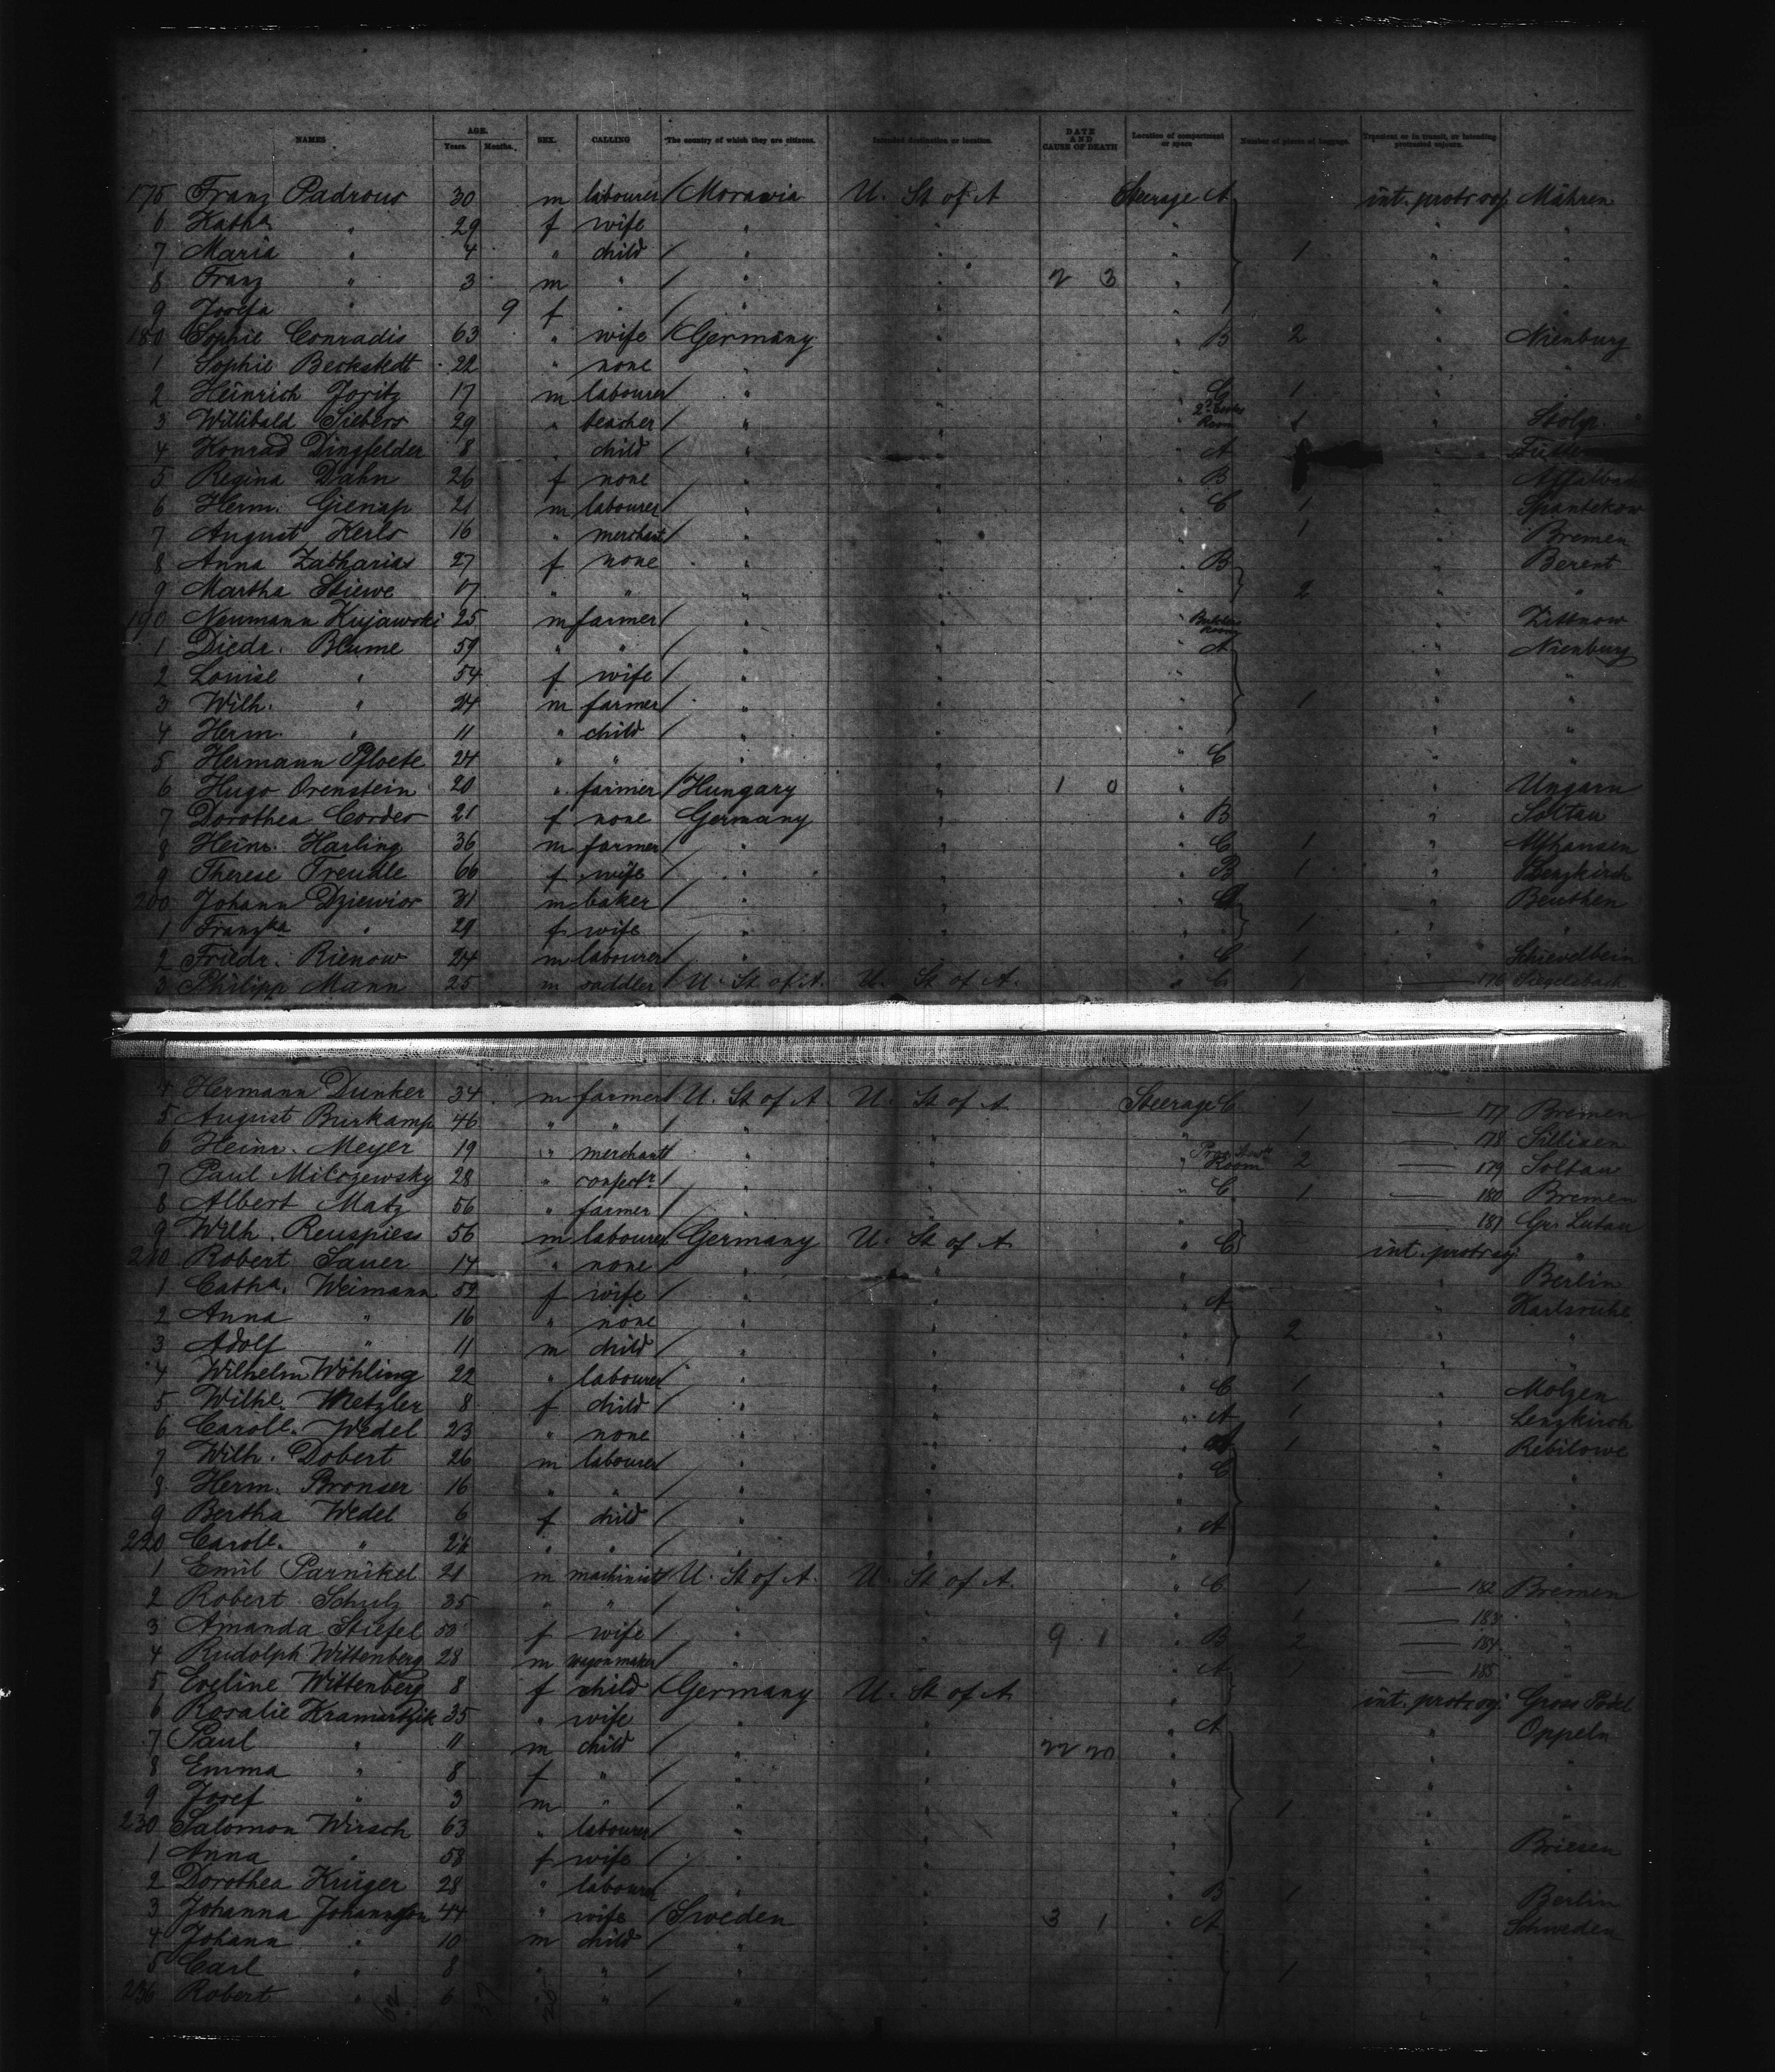 NAMES AGE. Years. Months. SEX. CALLING The country of which they are citizens. Intended destination or location. DATE AND CAUSE OF DEATH Location of compartment or space Number of pieces of baggage. Transient or in transit, or intending protracted sojourn.
175 Franz Padrous 30 m labourer / Moravia U. St of A Steerage A int. protr soj. Mähren
6 Katha " 29 f wife " " " " "
7 Maria " 4 " child / " " " 1 " "
8 Franz " 3 m " / " " 2 3 " " "
9 Josefa " 9 f " " " " " "
180 Sophie Conradis 63 " wife / Germany " " B 2 " Nienburg
1 Sophie Beckstedt 22 " none " " " " "
2 Heinrich Joritz 17 m labourer / " " " C 1 " "
3 Willibald Siebers 29 " teacher / " " " Room 1 " Stolp
4 Konrad Dingfelder 8 " child / " " " A "
5 Regina Dahn 26 f none " " " B "
6 Herm. Gienap 21 m labourer / " " " C 1 " Spantekow
7 August Kerls 16 " merchant / " " " 1 " Bremen
8 Anna Zatharias 27 f none " " " B " Berent
9 Martha Stiewe 17 " " " " " 2 " "
190 Neumann Kujawski 25 m farmer / " " " Room Zittnow
1 Diedr. Blume 59 " " / " " " A " Nienburg
2 Louise " 54 f wife / " " " " "
3 Wilh. " 24 m farmer / " " " 1 " "
4 Herm. " 11 " child / " " " " "
5 Hermann Pfloete 24 " " " " " C
6 Hugo Orenstein 20 " farmer / Hungary " 1 0 " " Ungarn
7 Dorothea Cordes 21 f none Germany " " B " Soltau
8 Heinr. Harling 36 m farmer / " " " C 1 " Althausen
9 Therese Treudle 66 f wife / " " " B 1 " Lenzkirch
200 Johann Dziewior 31 m baker / " " " " Beuthen
1 Franzka " 29 f wife " " " 1 " "
2 Friedr. Rienow 24 m labourer / " " " C 1 " Schievelbein
3 Philipp Mann 25 m saddler / U. St of A. U. St of A. " C 1 — 176 Siegelsbach
4 Hermann Dunker 34 m farmer / U. St of A U. St of A Steerage C 1 — 177 Bremen
5 August Burkamp 46 " " / " " " 1 — 178
6 Heinr. Meyer 19 " merchant / " " " Room 2 — 179 Soltau
7 Paul Milozewsky 28 " confectr / " " " C 1 — 180 Bremen
8 Albert Matz 56 " farmer / " " " — 181 Grr Lutau
9 Wilh. Reuspiess 56 m labourer / Germany U. St of A " C int. protr soj. "
210 Robert Sauer 14 " none " " " " Berlin
1 Catha. Weimann 59 f wife / " " " A " Karlsruhe
2 Anna " 16 " none " " " 2 " "
3 Adolf " 11 m child / " " " " "
4 Wilhelm Wöhling 22 " labourer / " " " C 1 " Molzen
5 Wilhe. Metzler 8 f child / " " " A 1 " Lenzkirch
6 Caroll. Wedel 23 " none " " " A 1 " Rebilowe
7 Wilh. Dobert 26 m labourer / " " " C " "
8 Herm. Bronser 16 " " / " " " " "
9 Bertha Wedel 6 f child / " " " A " "
220 Caroll. " " " / " " " " "
1 Emil Parnikel 21 m machinist / U. St of A. U. St of A. " C 1 — 182 Bremen
2 Robert Schulz 35 " " / " " " 1 — 183 "
3 Amanda Stiefel 50 f wife / " " 9 1 " B 2 — 184 "
4 Rudolph Wittenberg 28 m wagonmaker / " " " A — 185 "
5 Eveline Wittenberg 8 f child / Germany U. St of A " int. protr soj. Gross Podel
6 Rosalie Kramartzik 35 " wife " " " A " Oppeln
7 Paul " 11 m child / " " 22 20 " " "
8 Emma " 8 f " / " " " " "
9 Josef " 3 m " / " " " 1 " "
230 Salomon Wirsch 63 " labourer / " " " " Briesen
1 Anna " 58 f wife / " " " " "
2 Dorothea Krüger 28 " labourer " " " B 1 " Berlin
3 Johanna Johannson 44 " wife / Sweden " 3 1 " A " Schweden
4 Johann " 10 m child / " " " " "
5 Carl " 8 " " / " " " 1 " "
236 Robert " 6 " " / " " " " "